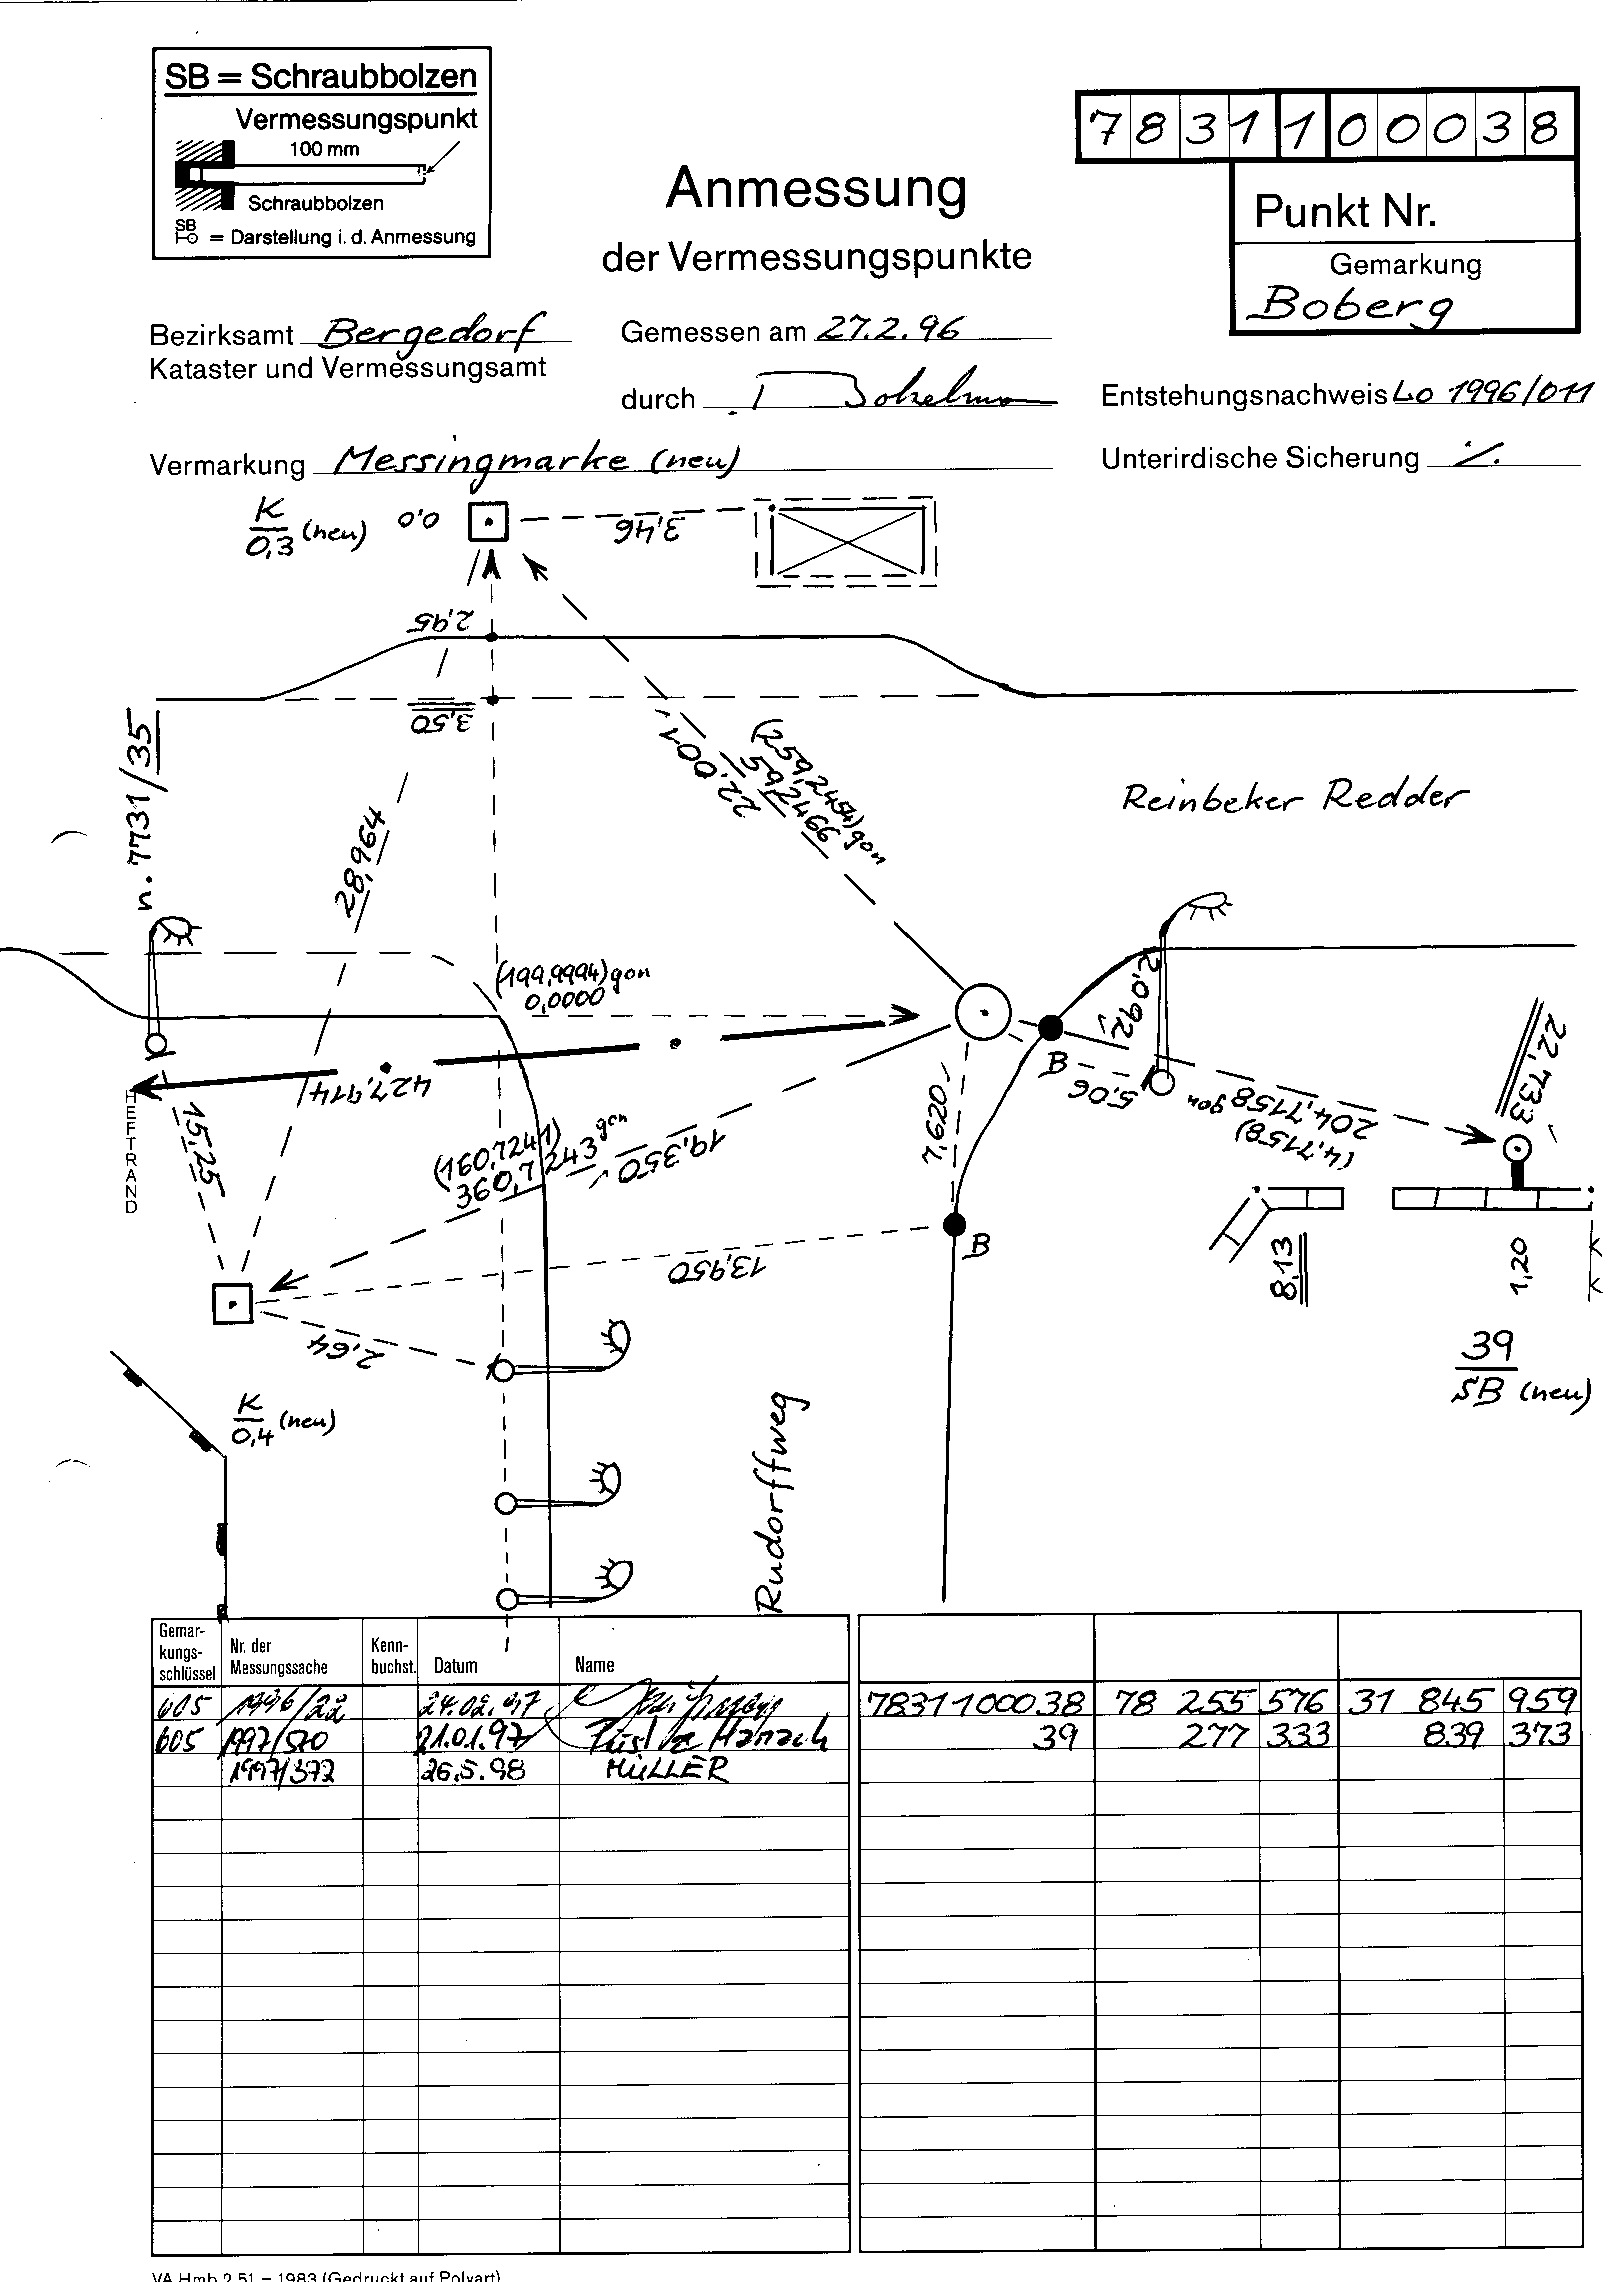 SB = Schraubbolzen
Vermessungspunkt
100 mm
Schraubbolzen
SB = Darstellung i. d. Anmessung
7831100038
Punkt Nr.
Gemarkung
Boberg
Anmessung
der Vermessungspunkte
Bezirksamt Bergedorf
Kataster und Vermessungsamt
Gemessen am 27.2.96
durch
Entstehungsnachweis Lo 1996/011
Vermarkung Messingmarke (neu)
Unterirdische Sicherung ·/.
K
0,3 (neu)
0,0
3,46
2,95
3,50
n. 7731/35
28,964
22,001
59,2466
(259,2454) gon
Reinbeker Redder
(199,9994) gon
0,0000
427,914
HEFTRAND
15,25
(160,7241)
360,7243 gon
19,350
7,620
2,092
B
5,06
204,7158 gon
(4,7158)
22,733
B
13,950
2,64
8,13
1,20
K
K
39
SB (neu)
K
0,4 (neu)
Rudorffweg
Gemar-
kungs-
schlüssel
Nr. der
Messungssache
Kenn-
buchst.
Datum
Name
605 1996/22 24.02.97
7831100038 78 255 576 31 845 959
605 1997/570 21.01.97
39 277 333 839 373
1997/372 26.5.98 MÜLLER
VA Hmb 2.51 – 1983 (Gedruckt auf Polyart)